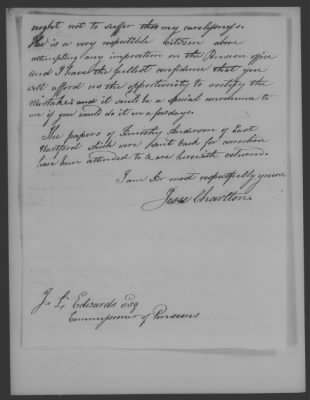 ought not to suffer thro my carelessness.
He is a very respectable Citizen above
attempting any imposition on the Pension office
and I have the fullest confidence that you
will afford us the opportunity to rectify the
mistake and it would be a special to
me if you would do it in a few days.
The papers of Timothy Anderson of East
Hartford which were sent back for correction
have been attended to & are herewith returned.
I am Sir most respectfully yours
Jesse Charlton
J. L. Edwards Esq
Commissioner of Pensions